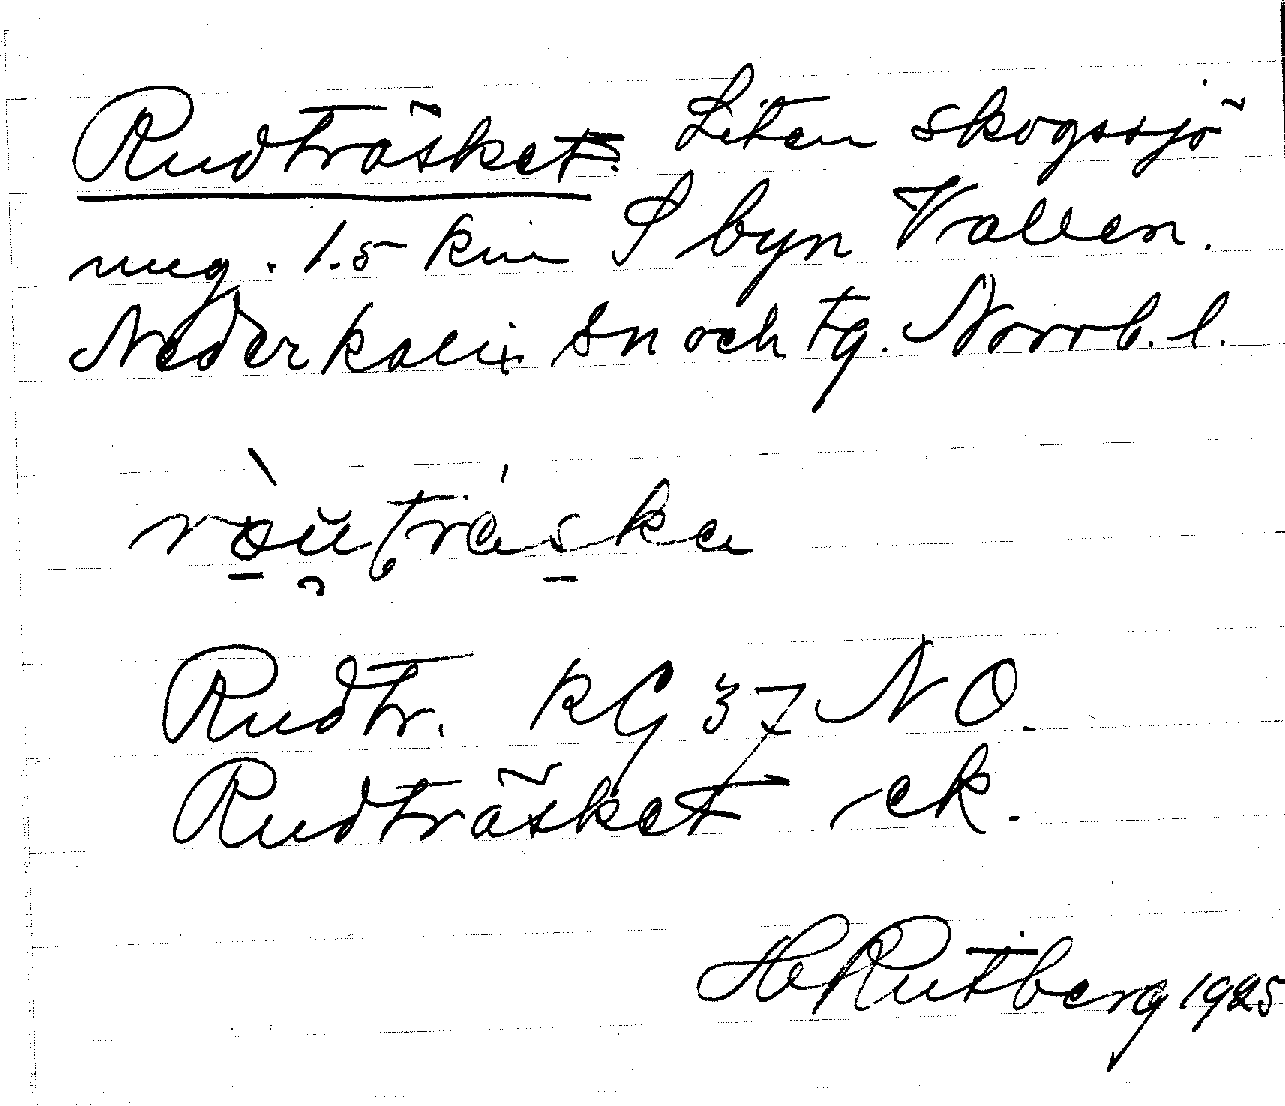 Rudträsket. Liten skogssjö
ung. 1.5 km S byn Vallen.
Nederkalix sn och tg. Norrb. l.
ròu̯träska
Rudtr. KG 37 NO.
Rudträsket ek.
H Rutberg 1925